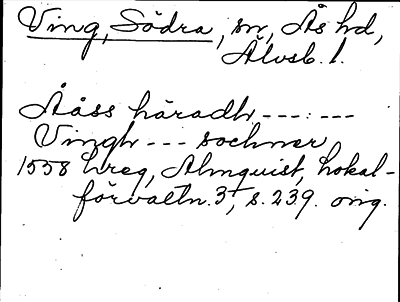 Ving, Södra, sn, Ås hd,
Älvsb. l.
Ååss häradh ---:---
Vingh --- sochner
1558 hreg, Almquist, Lokal-
förvaltn. 3, s. 239. orig.